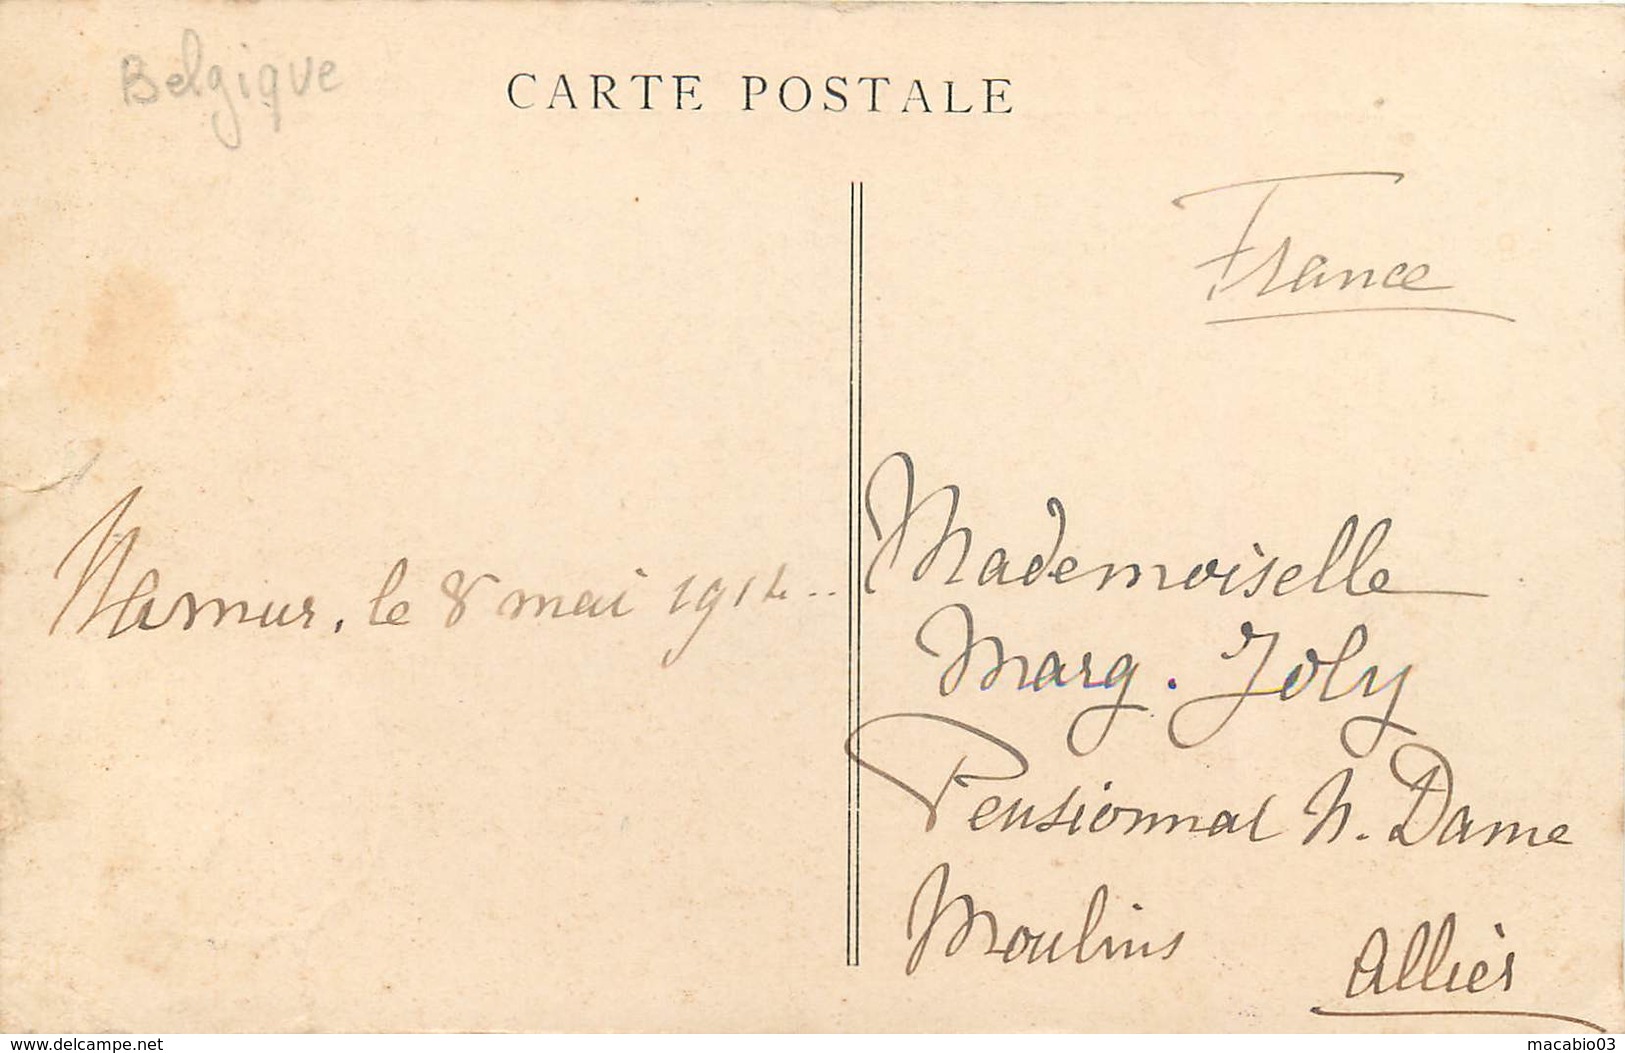 Belgique
CARTE POSTALE
France
Namur, le 8 mai 1914..
Mademoiselle
Marg. Joly
Pensionnat N. Dame
Moulins
Allier
www.delcampe.net
macabio03